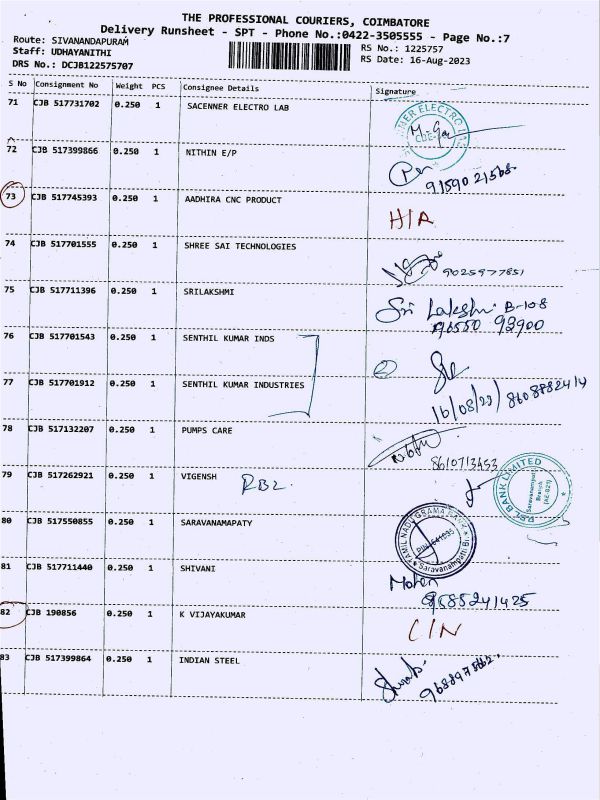 THE PROFESSIONAL COURIERS, COIMBATORE
Delivery Runsheet - SPT - Phone No.:0422-3505555 - Page No.:7
Route: SIVANANDAPURAM
Staff: UDHAYANITHI
DRS No.: DCJB122575707
RS No.: 1225757
RS Date: 16-Aug-2023
S No Consignment No Weight PCS Consignee Details Signature
71 CJB 517731702 0.250 1 SACENNER ELECTRO LAB
72 CJB 517399866 0.250 1 NITHIN E/P
73 CJB 517745393 0.250 1 AADHIRA CNC PRODUCT H/A
74 CJB 517701555 0.250 1 SHREE SAI TECHNOLOGIES 9025977851
75 CJB 517711396 0.250 1 SRILAKSHMI Sri Lakshmi B-108
96550 93900
76 CJB 517701543 0.250 1 SENTHIL KUMAR INDS
77 CJB 517701912 0.250 1 SENTHIL KUMAR INDUSTRIES 16/08/23 8608882414
78 CJB 517132207 0.250 1 PUMPS CARE 8610713453
79 CJB 517262921 0.250 1 VIGENSH RBL RBL BANK LIMITED Saravanampatti Branch
80 CJB 517550855 0.250 1 SARAVANAMAPATY TAMIL NADU GRAMA BANK Saravanampatti Br. PIN 641035
81 CJB 517711440 0.250 1 SHIVANI Mohan
9685241425
82 CJB 190856 0.250 1 K VIJAYAKUMAR C/N
83 CJB 517399864 0.250 1 INDIAN STEEL